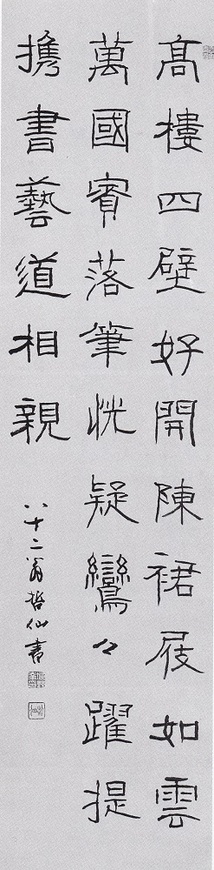 髙樓四壁好開陳裙屐如雲
萬國賓落筆恍疑鸞々躍提
携書藝道相親
八十二翁哲仙書